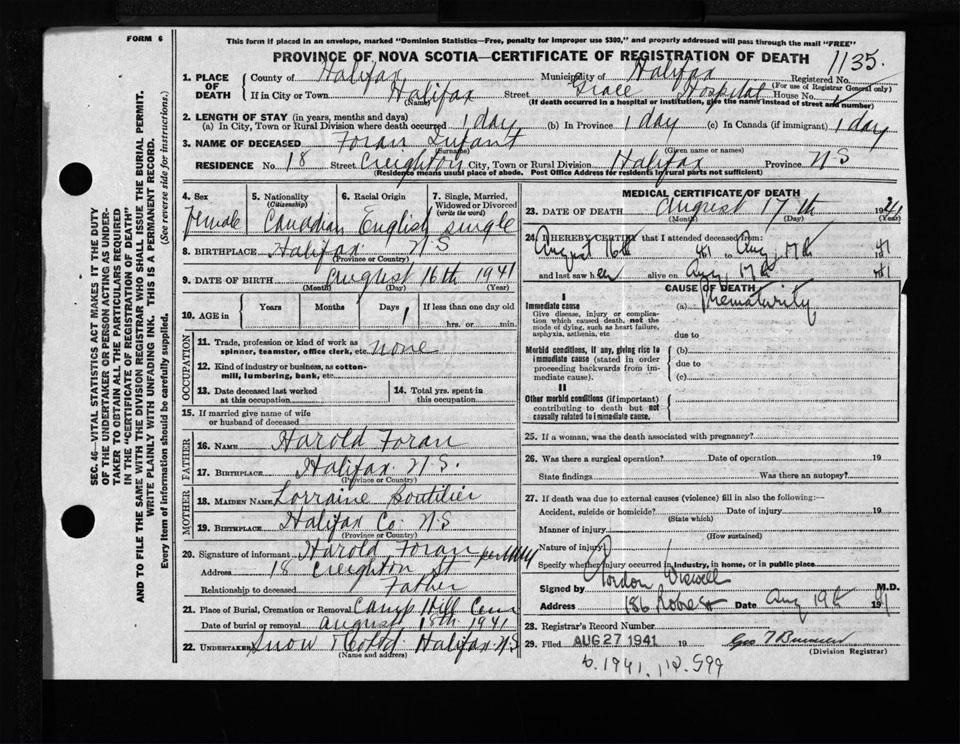 FORM 6
This form if placed in an envelope, marked "Dominion Statistics—Free, penalty for improper use $300," and properly addressed will pass through the mail "FREE"
PROVINCE OF NOVA SCOTIA—CERTIFICATE OF REGISTRATION OF DEATH
1135.
1. PLACE OF DEATH
County of Halifax Municipality of Halifax Registered No.
(For use of Registrar General only)
If in City or Town Halifax Street Grace Hospital House No.
(Name) (If death occurred in a hospital or institution, give the name instead of street and number)
2. LENGTH OF STAY (in years, months and days)
(a) In City, Town or Rural Division where death occurred 1 day (b) In Province 1 day (c) In Canada (if immigrant) 1 day
3. NAME OF DECEASED Foran Infant
(Surname) (Given name or names)
RESIDENCE No. 18 Street Creighton City, Town or Rural Division Halifax Province N.S
(Residence means usual place of abode. Post Office Address for residents in rural parts not sufficient)
4. Sex 5. Nationality (Citizenship) 6. Racial Origin 7. Single, Married, Widowed or Divorced (write the word)
Female Canadian English single
8. BIRTHPLACE Halifax N.S
(Province or Country)
9. DATE OF BIRTH August 16th 1941
(Month) (Day) (Year)
10. AGE in Years Months Days 1 If less than one day old
hrs. or min.
OCCUPATION
11. Trade, profession or kind of work as spinner, teamster, office clerk, etc. none
12. Kind of industry or business, as cotton-mill, lumbering, bank, etc.
13. Date deceased last worked at this occupation
14. Total yrs. spent in this occupation
15. If married give name of wife or husband of deceased
FATHER
16. NAME Harold Foran
17. BIRTHPLACE Halifax. N.S.
(Province or Country)
MOTHER
18. MAIDEN NAME Lorraine Boutilier
19. BIRTHPLACE Halifax Co. N.S
(Province or Country)
20. Signature of informant Harold Foran per
Address 18 Creighton St
Relationship to deceased Father
21. Place of Burial, Cremation or Removal Camp Hill Cem
Date of burial or removal August 18th 1941
22. UNDERTAKER Snow & Co Ltd Halifax N.S
(Name and address)
MEDICAL CERTIFICATE OF DEATH
23. DATE OF DEATH August 17th 1941
(Month) (Day) (Year)
24. I HEREBY CERTIFY that I attended deceased from:
August 16th 1941 to Aug 17th 41
and last saw her alive on Aug 17th 41
CAUSE OF DEATH
I
Immediate cause (a) Prematurity
Give disease, injury or complication which caused death, not the mode of dying, such as heart failure, asphyxia, asthenia, etc
due to
Morbid conditions, if any, giving rise to immediate cause (stated in order proceeding backwards from immediate cause).
(b)
due to
(c)
II
Other morbid conditions (if important) contributing to death but not causally related to immediate cause.
25. If a woman, was the death associated with pregnancy?
26. Was there a surgical operation? Date of operation 19
State findings Was there an autopsy?
27. If death was due to external causes (violence) fill in also the following:—
Accident, suicide or homicide? Date of injury 19
(State which)
Manner of injury
(How sustained)
Nature of injury
Specify whether injury occurred in industry, in home, or in public place
Signed by Gordon Wiswell M.D.
Address 186 Robie St Date Aug 19th 1941
28. Registrar's Record Number
29. Filed AUG 27 1941 19
(Division Registrar)
b. 1941, p. 599
SEC. 46—VITAL STATISTICS ACT MAKES IT THE DUTY
OF THE UNDERTAKER OR PERSON ACTING AS UNDER-
TAKER TO OBTAIN ALL THE PARTICULARS REQUIRED
IN THE "CERTIFICATE OF REGISTRATION OF DEATH"
AND TO FILE THE SAME WITH THE DIVISION REGISTRAR WHO SHALL ISSUE THE BURIAL PERMIT.
WRITE PLAINLY WITH UNFADING INK. THIS IS A PERMANENT RECORD.
Every item of information should be carefully supplied. (See reverse side for instructions.)